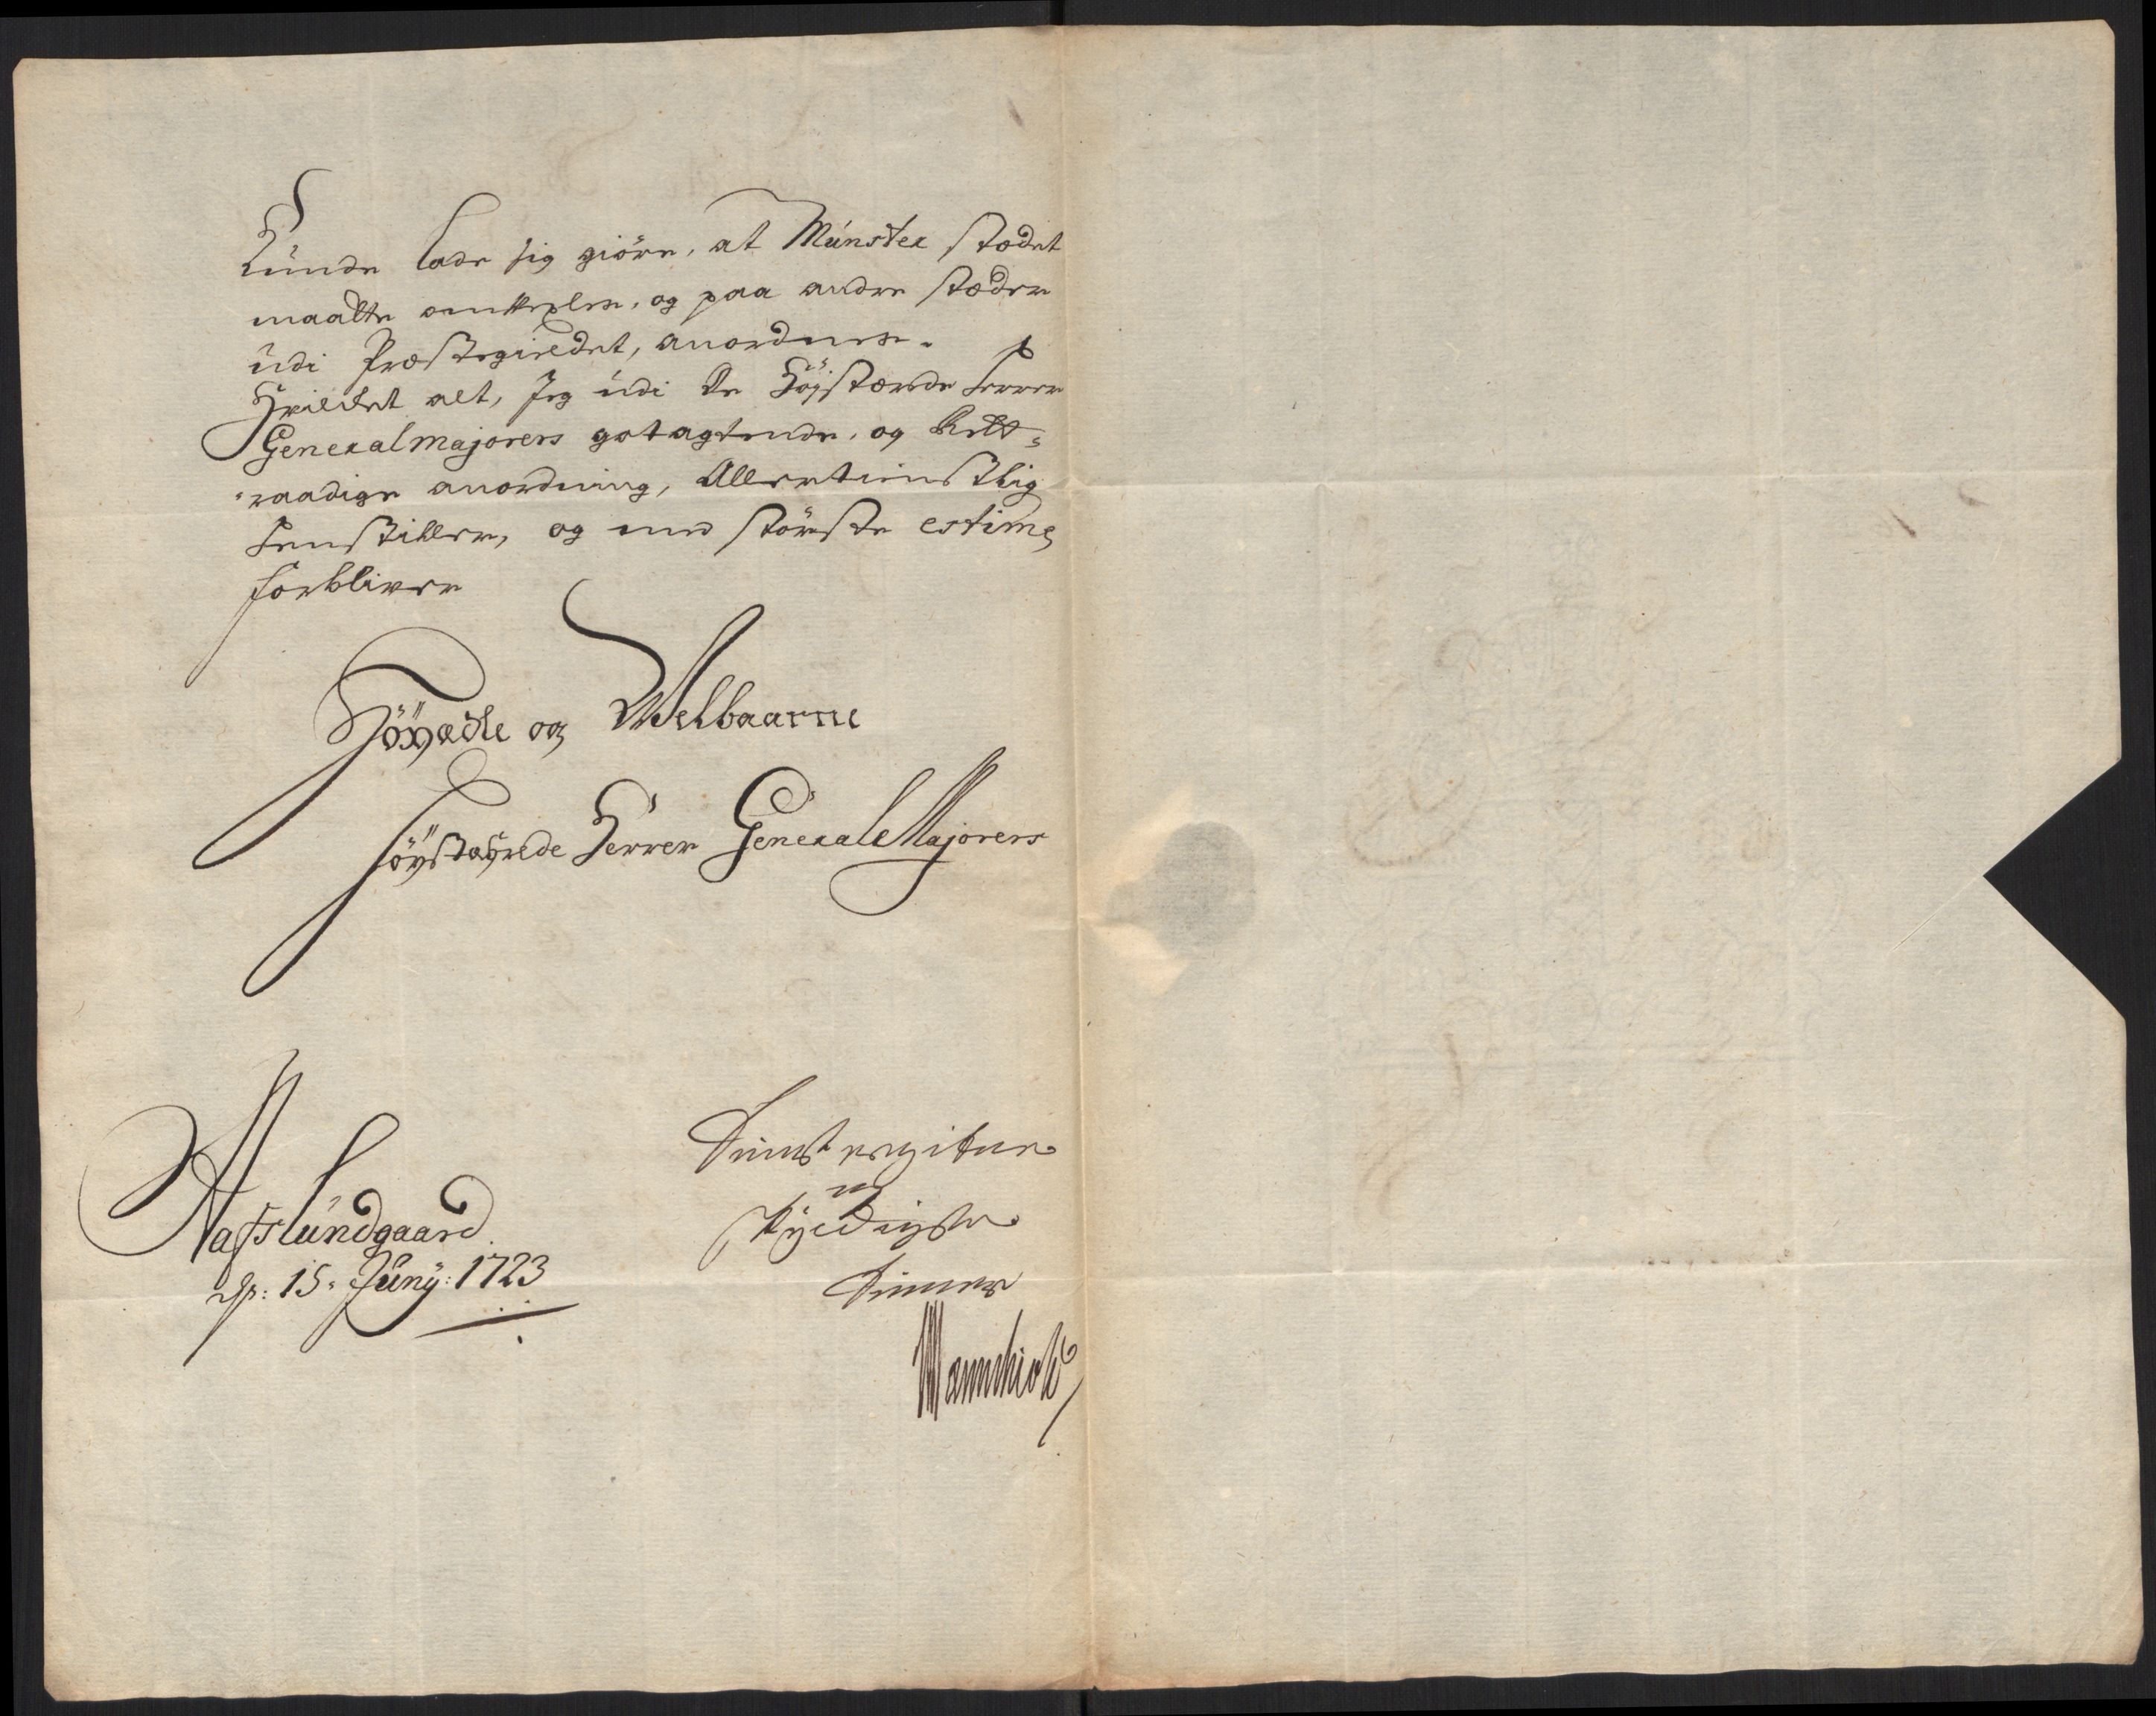 Kunde lade sig giöre, at Münster stædet
maatte omskeplen, og paa andre stæder
udi Præstegieldet, anordnes.
Hvilchet alt, Jeg udi De Höjstærede Herrer
Generalmajorers gotagtende, og Rett-
raadige anordning, Allertienstlig
henstiller, og med störste estime
forbliver
Höyædle og Welbaarne
Höystærede Herrer General Majorers
Hafslundgaard
dp: 15. Juny: 1723
Tienstvegitne
og
skyldigste
Tienner